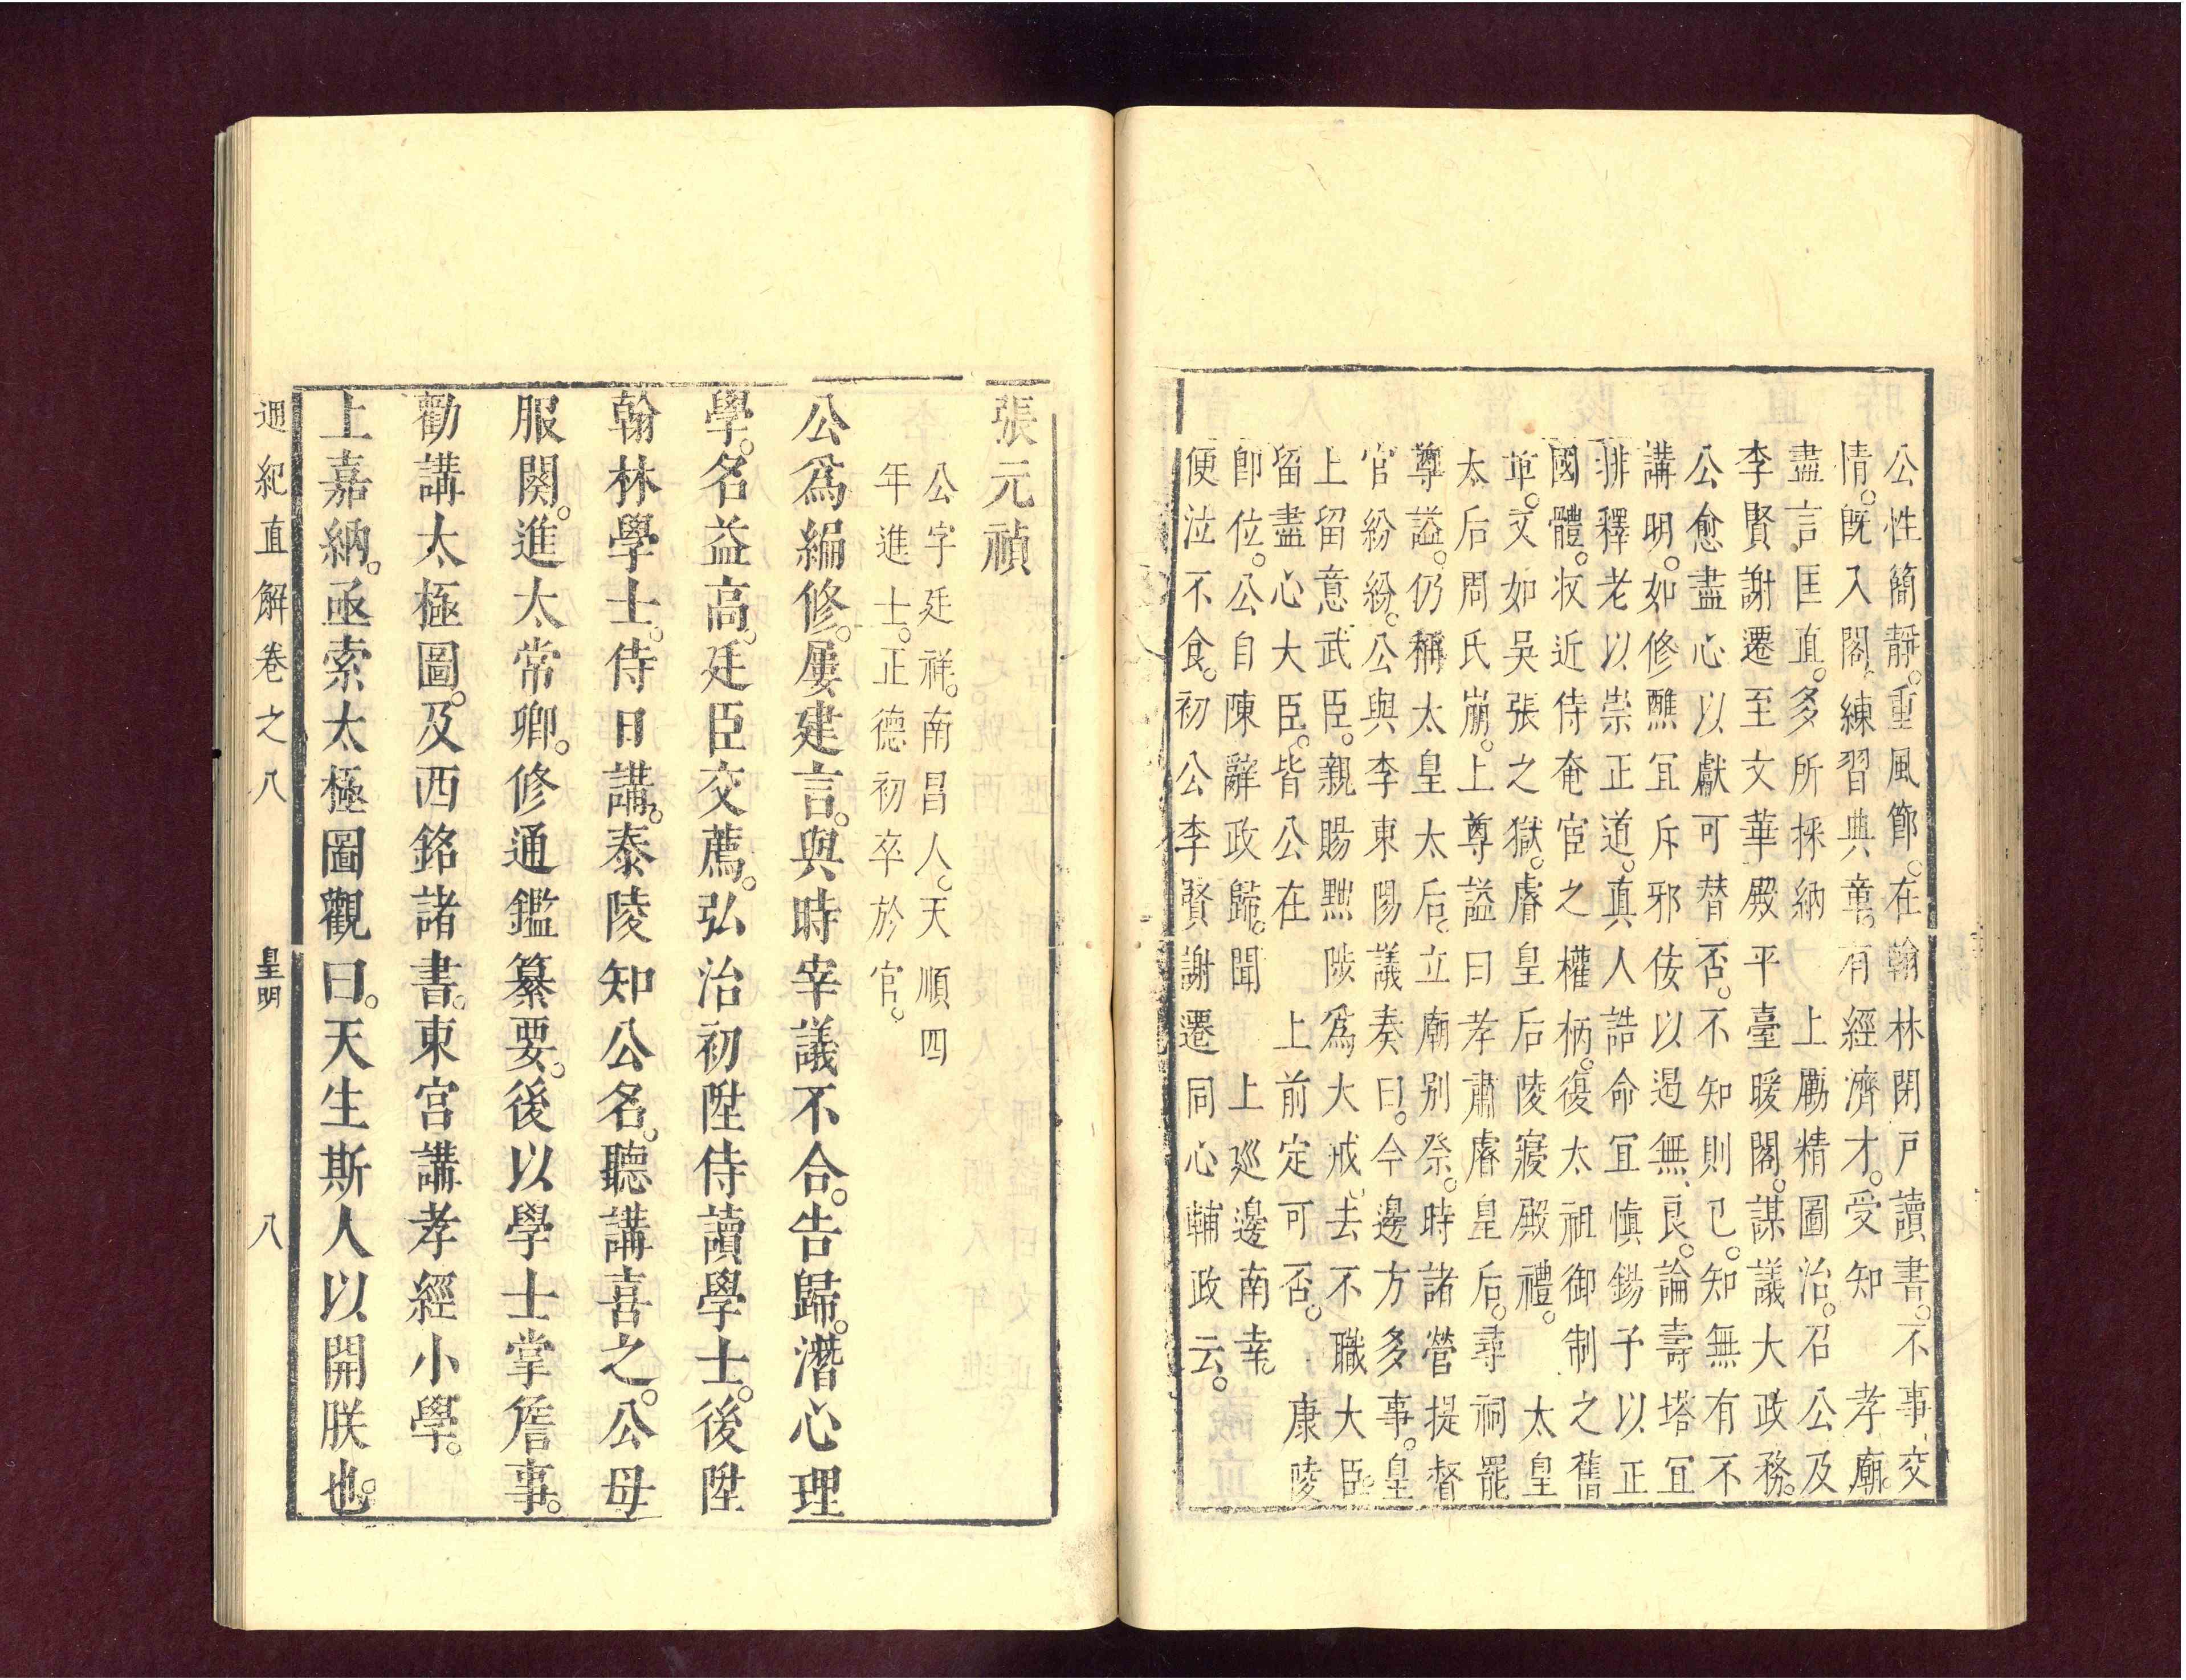 公性簡靜。重風節。在翰林閉戸讀書。不事交
情。旣入閣。練習典章。有經濟才。受知　孝廟。
盡言匡直。多所採納　上勵精圖治。召公及
李賢謝遷至文華殿平臺暖閣。謀議大政務。
公愈盡心以獻可替否。不知則已。知無有不
講明。如修醮冝斥邪侫以遏無良。論壽塔冝
排釋老以崇正道。眞人誥命冝愼錫予以正
國體。收近侍奄宦之權柄。復太祖御制之舊
章。又如吳張之獄。睿皇后陵寢殿禮。　太皇
太后周氏崩。上尊謚曰孝肅睿皇后。尋祠罷
尊謚。仍稱太皇太后。立廟别祭。時諸營提督
官紛紛。公與李東陽議奏曰。今邊方多事。皇
上留意武臣。親賜黜陟爲大戒。去不職大臣。
留盡心大臣。皆公在　上前定可否。　康陵
卽位。公自陳辭政歸。聞　上巡邊南幸。
便泣不食。初公李賢謝遷同心輔政云。
張元禎
公字廷祥。南昌人。天順四
年進士。正德初卒於官。
公爲編修。屢建言。與時宰議不合。告歸。潛心理
學。名益高。廷臣交薦。弘治初陞侍讀學士。後陞
翰林學士。侍日講。泰陵知公名。聽講喜之。公母
服闋。進太常卿。修通鑑纂要。後以學士掌詹事。
勸講太極圖。及西銘諸書。東宮講孝經小學。
上嘉納。亟索太極圖觀曰。天生斯人以開朕也。
週紀直解卷之八　皇明　八